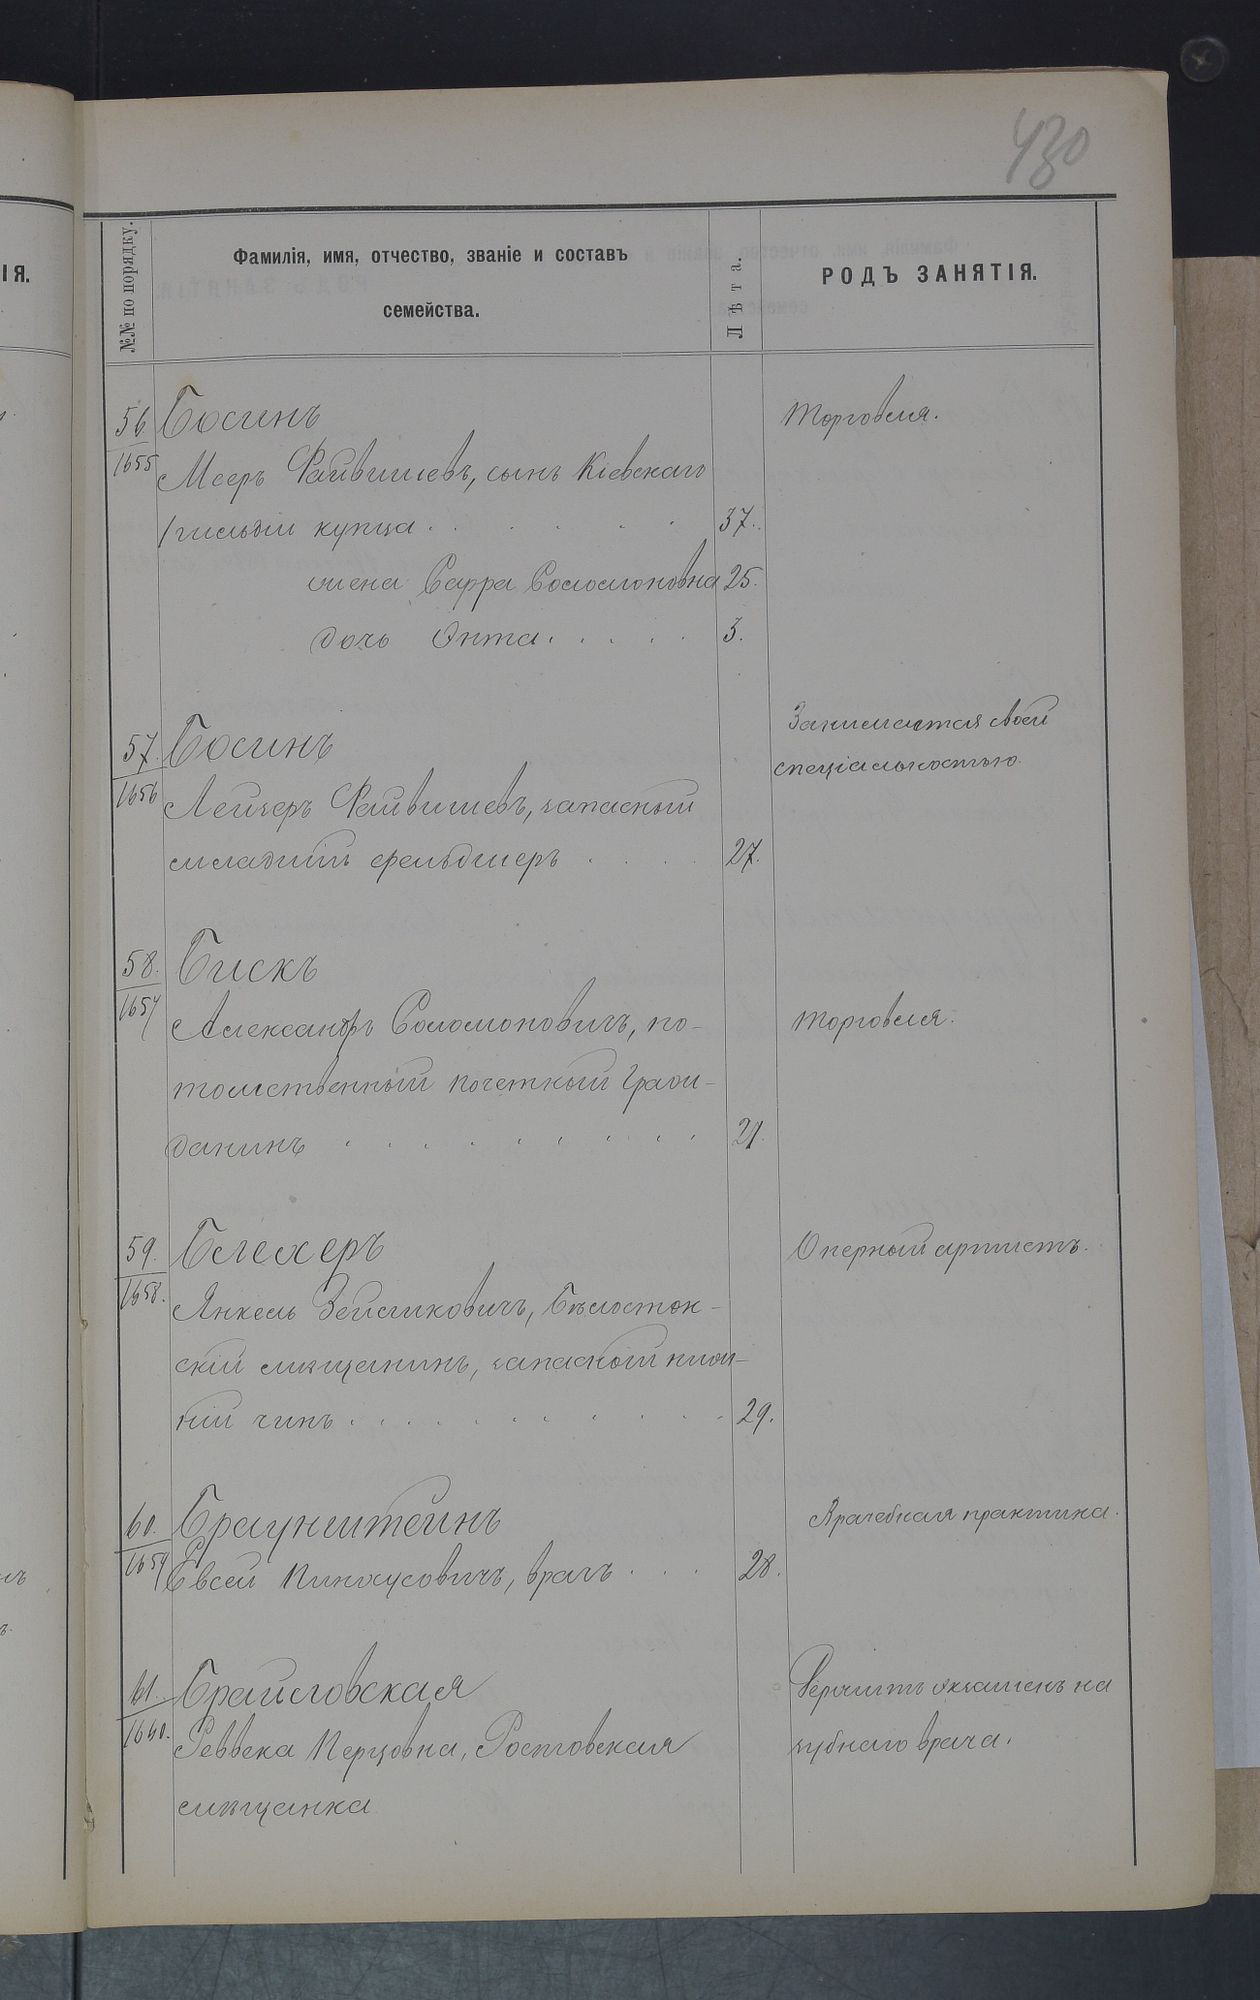 430
ІЯ.
№№ по порядку.
Фамилія, имя, отчество, званіе и составъ
семейства.
Лѣта.
РОДЪ ЗАНЯТІЯ.
56 Босинъ Торговля.
1655 Мееръ Файвишевъ, сынъ Кіевскаго
1 гильдіи купца . . . . . . 37.
жена Сарра Соломоновна 25.
дочь Энта . . . . . 3.
57. Босинъ Занимается своей
спеціальностью.
1656 Лейзеръ Файвишевъ, запасный
младшій фельдшеръ . . . . 27.
58. Бискъ
1657 Александръ Соломоновичъ, по- Торговля.
томственный почетный граж-
данинъ . . . . . . . . . 21.
59. Блехеръ Оперный артистъ.
1658. Янкель Зейликовичъ, Бѣлосток-
скій мѣщанинъ, запасный ниж-
ній чинъ . . . . . . . . . . 29.
60. Браунштейнъ Врачебная практика.
1659 Евсей Пинхусовичъ, врачъ . . . 28.
61. Браиловская Держитъ экзаменъ на
1660. Реввека Перцовна, Ростовская зубнаго врача.
мѣщанка